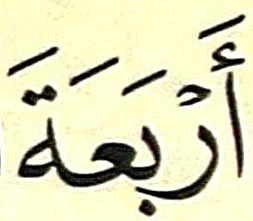 أَرْبَعَةَ